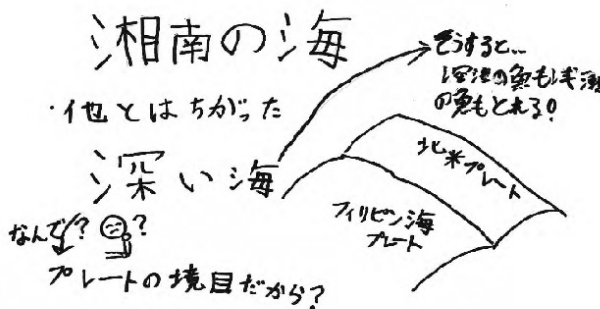 湘南の海
・他とはちがった
深い海
なんで?
?
プレートの境目だから?
そうすると…
深海の魚も浅瀬
の魚もとれる!
北米プレート
フィリピン海
プレート